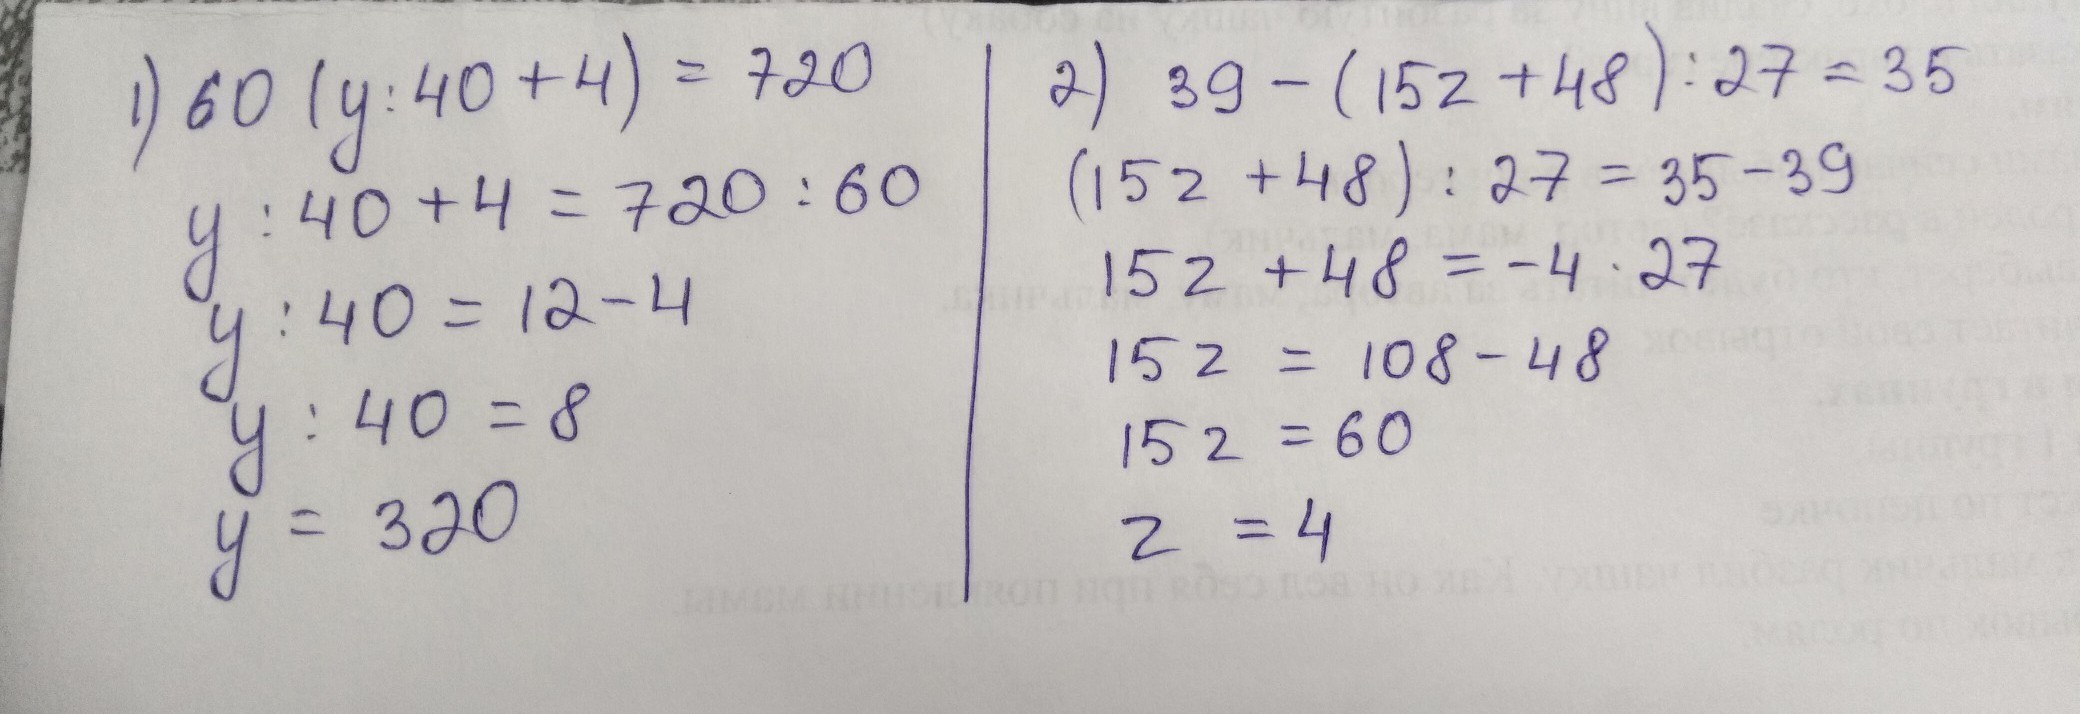 1) 60 (y : 40 + 4) = 720
y : 40 + 4 = 720 : 60
y : 40 = 12 - 4
y : 40 = 8
y = 320
2) 39 - (15z + 48) : 27 = 35
(15z + 48) : 27 = 35 - 39
15z + 48 = -4 · 27
15z = 108 - 48
15z = 60
z = 4